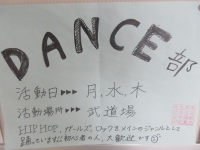 DANCE部
活動日▸▸▸ 月、水、木
活動場所▸▸▸ 武道場
HIPHOP、ガールズ、ロックをメインのジャンルとして
踊っています!! 初心者の人、大歓迎です